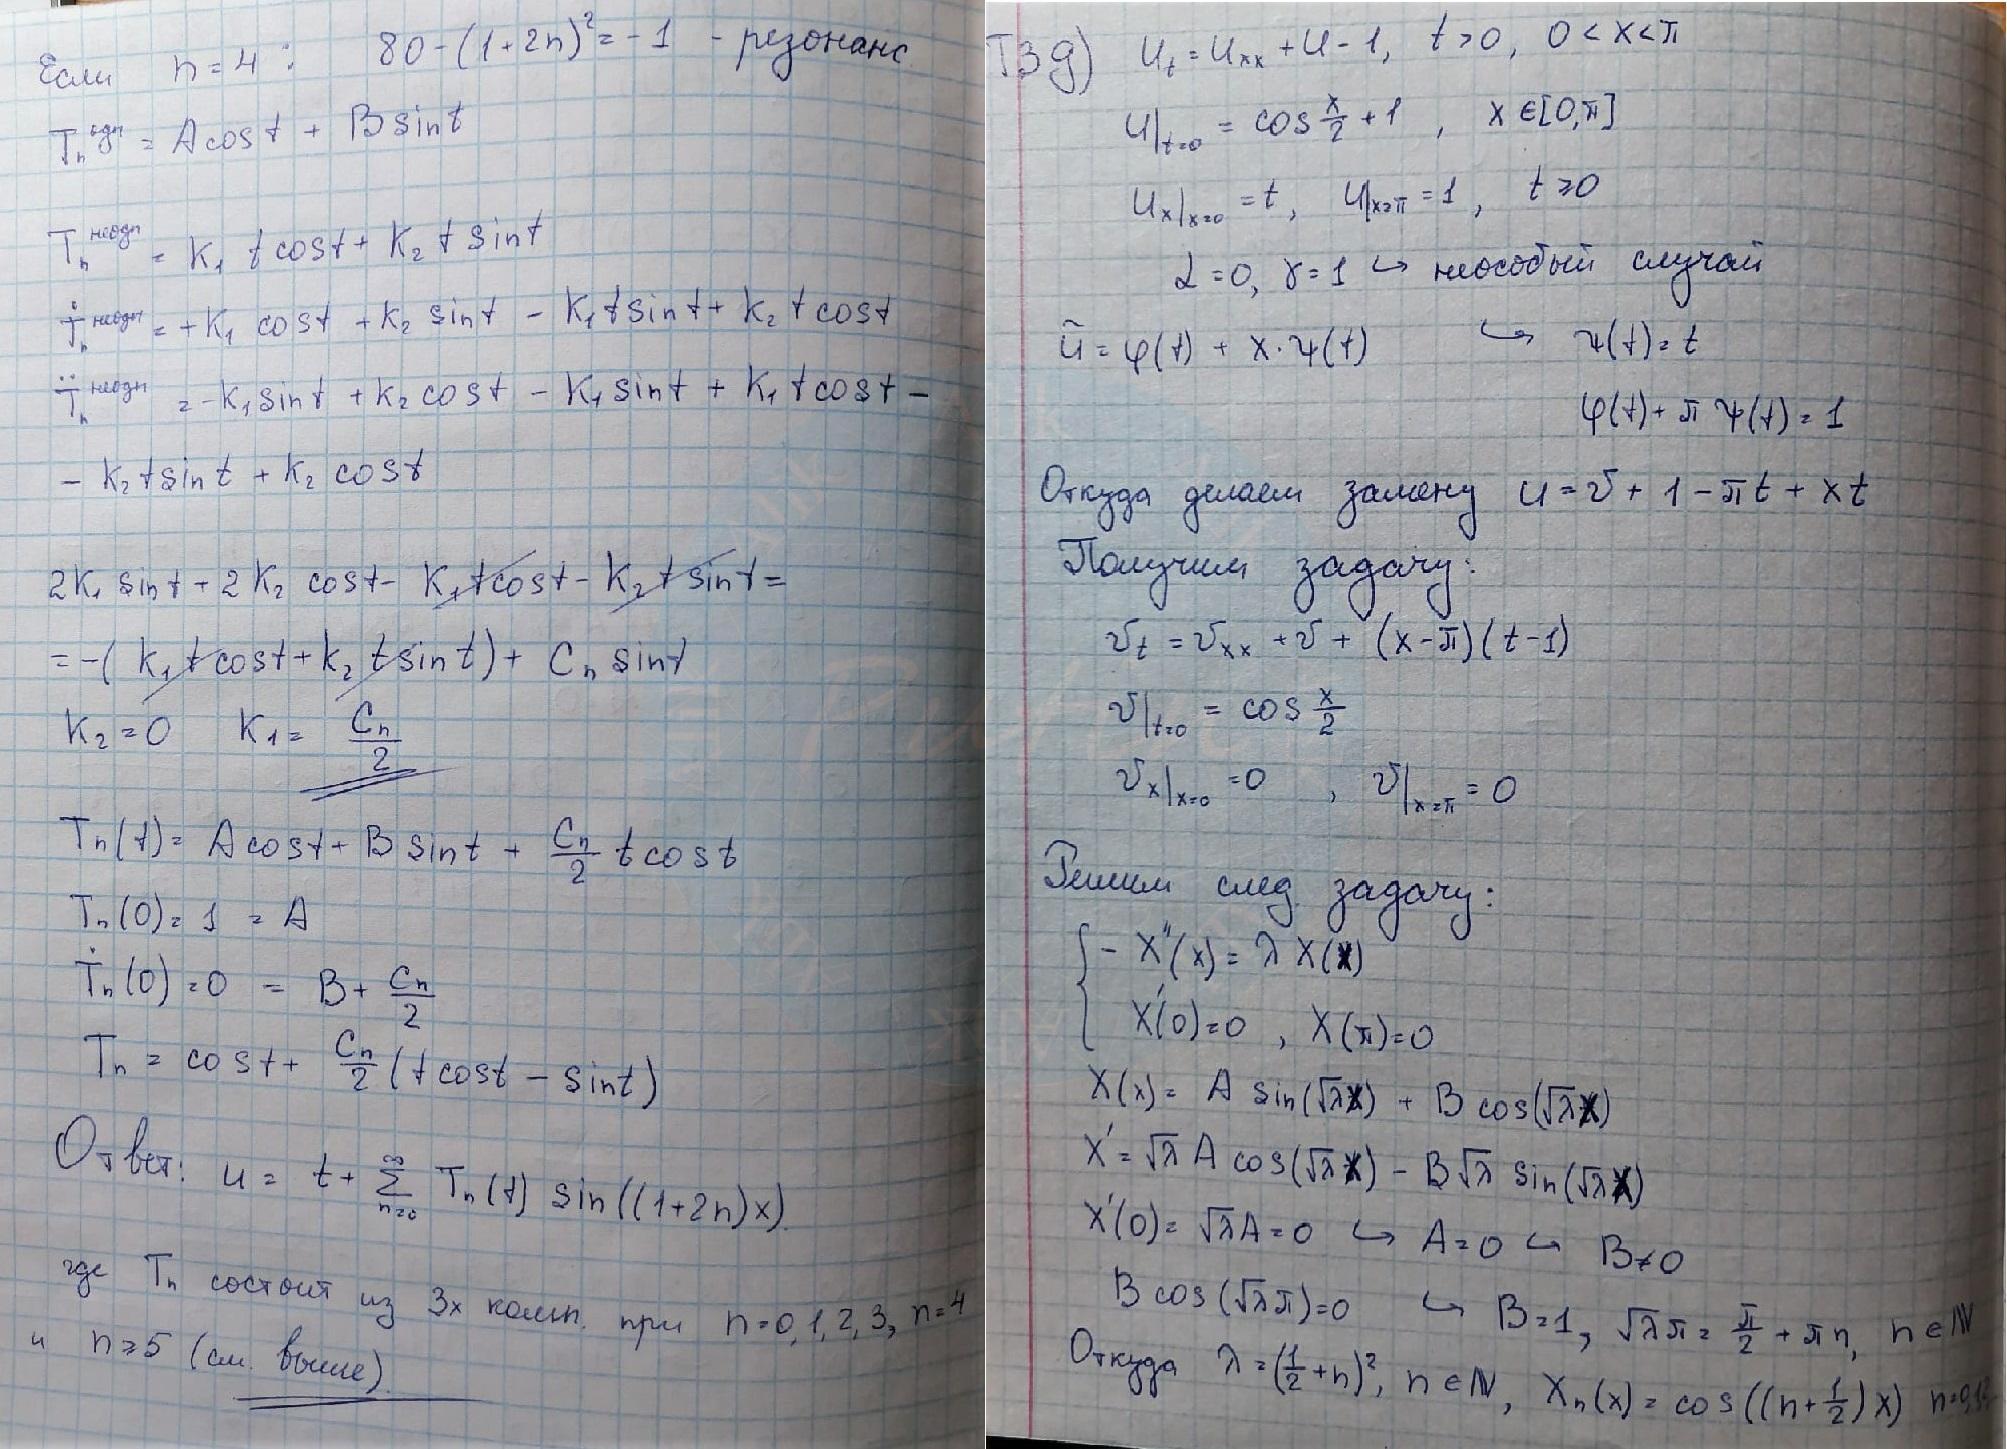 Если n = 4 : 80 - (1+2n)² = -1 - резонанс
Tₙ^одн = A cost + B sint
Tₙ^неодн = K₁ t cost + K₂ t sint
Ṫₙ^неодн = +K₁ cost + K₂ sint - K₁ t sint + K₂ t cost
T̈ₙ^неодн = -K₁ sint + K₂ cost - K₁ sint + K₁ t cost -
- K₂ t sint + K₂ cost
2K₁ sint + 2K₂ cost - K₁ t cost - K₂ t sint =
= -( K₁ t cost + K₂ t sint) + Cₙ sint
K₂ = 0 K₁ = Cₙ/2
Tₙ(t) = A cost + B sint + Cₙ/2 t cost
Tₙ(0) = 1 = A
Ṫₙ(0) = 0 = B + Cₙ/2
Tₙ = cost + Cₙ/2 (t cost - sint)
Ответ: u = t + ∑_{n=0}^∞ Tₙ(t) sin((1+2n)x).
где Tₙ состоит из 3х комп. при n = 0, 1, 2, 3, n=4
и n ≥ 5 (см. выше).
Т3 д) uₜ = uₓₓ + u - 1, t > 0, 0 < x < π
u|ₜ₌₀ = cos x/2 + 1 , x ∈ [0, π]
uₓ|ₓ₌₀ = t, u|ₓ₌π = 1 , t ≥ 0
α = 0, γ = 1 ↪ неособый случай
ũ = φ(t) + x·ψ(t) ↪ ψ(t) = t
φ(t) + π ψ(t) = 1
Откуда делаем замену u = v + 1 - πt + xt
Получим задачу:
vₜ = vₓₓ + v + (x-π)(t-1)
v|ₜ₌₀ = cos x/2
vₓ|ₓ₌₀ = 0 , v|ₓ₌π = 0
Решим след задачу:
{ - X''(x) = λ X(x)
X'(0) = 0 , X(π) = 0
X(x) = A sin(√λx) + B cos(√λx)
X' = √λ A cos(√λx) - B√λ sin(√λx)
X'(0) = √λA = 0 ↪ A = 0 ↪ B ≠ 0
B cos(√λπ) = 0 ↪ B = 1, √λπ = π/2 + πn, n ∈ ℕ
Откуда λ = (1/2 + n)², n ∈ ℕ, Xₙ(x) = cos((n + 1/2)x)